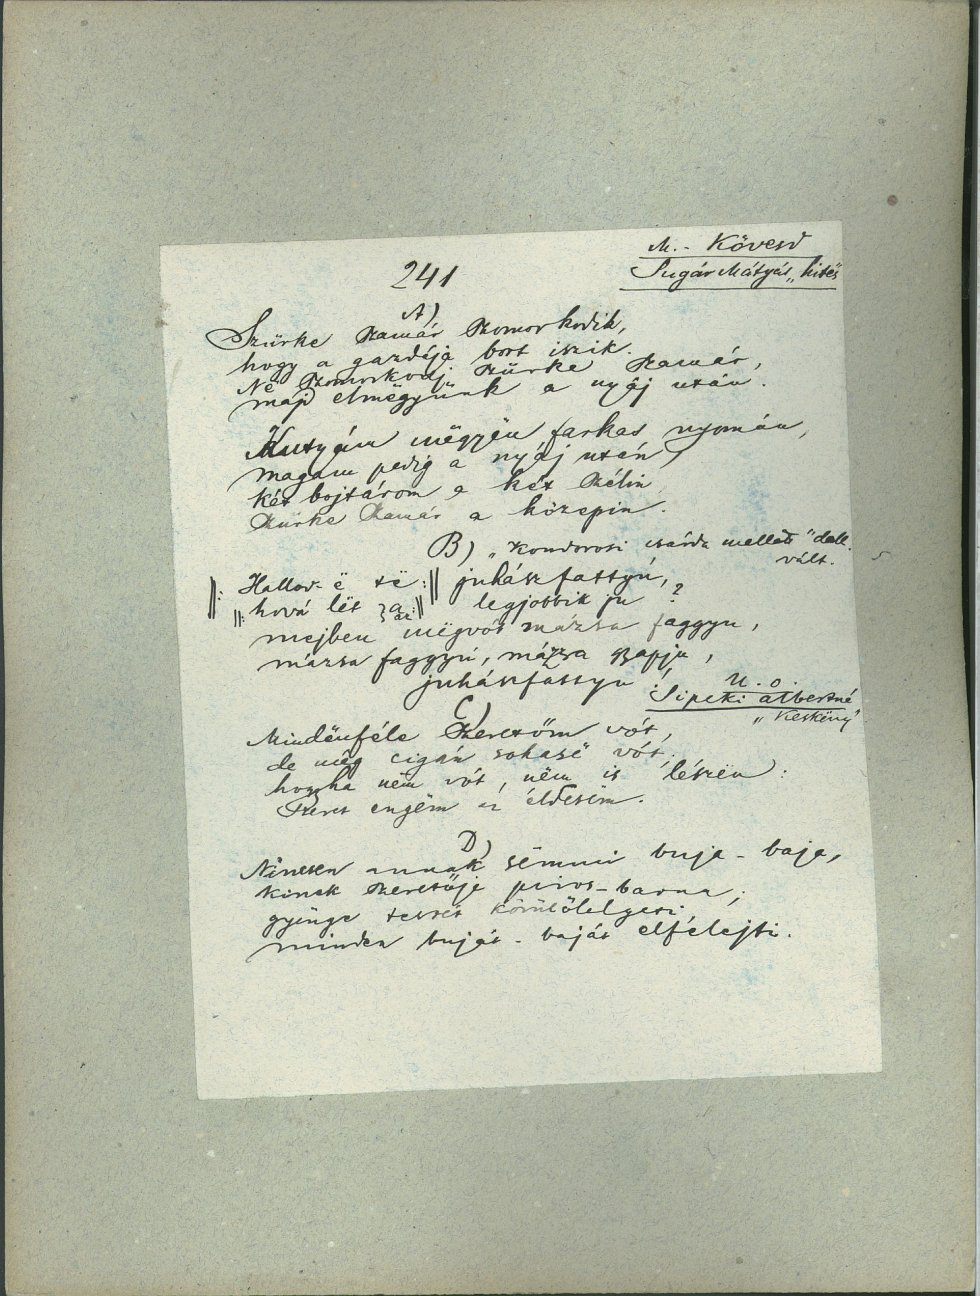 M.- Kövesd
Sugár Mátyás „hites"
241
A)
Szürke szamár szomorkodik,
hogy a gazdája bort iszik.
Ne szomorkodj szürke szamár,
majd elmëgyünk a nyáj után.
Kutyám mëgyën farkas nyomán,
magam pedig a nyáj után,
két bojtárom a két szélin
szürke szamár a közepin.
B) „Kondorosi csárda mellett" dall.
vált.
||: Hallod-ë të :|| juhászfattyú,
||: hová lët az a :|| legjobbik ju ?
mejben mëgvót mázsa faggyu,
mázsa faggyú, mázsa gyapju,
juhászfattyu !
U. o.
Sipeki Albertné
„Keskëny"
C)
Mindënféle szeretőm vót,
de még cigán sohasë vót,
hogyha nëm vót, nëm is lészën :
szeret engëm az édësëm.
D)
Nincsen annak sëmmi buja-baja,
kinek szeretője piros-barna,
gyënge testét körülölelgeti,
minden buját-baját elfelejti.